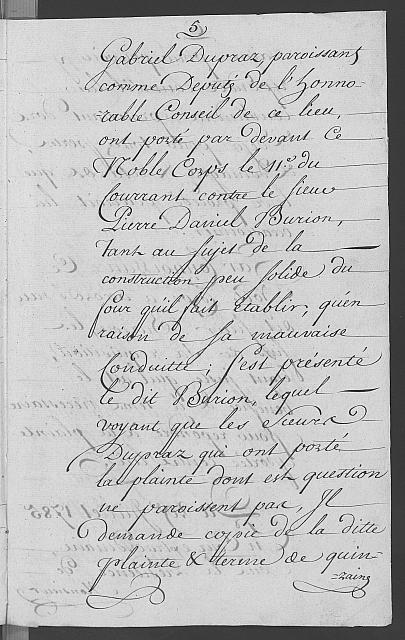 5
Gabriel Dupraz, paroissant
comme Deputé de l'honno-
rable Conseil de ce lieu,
ont porté par devant Ce
Noble Corps le 11.e du
Courrant contre le Sieur
Pierre Daniel Burion,
tant au Sujet de la
construction peu Solide du
four qu'il fait etablir; qu'en
raison de sa mauvaise
Conduitte; s'est présenté
le dit Burion, lequel
voyant que les Sieurs
Dupraz que ont porté
la plainte dont est question
ne paroissent pas, Il
demande copie de la ditte
plainte & terme de quin-
=zaine